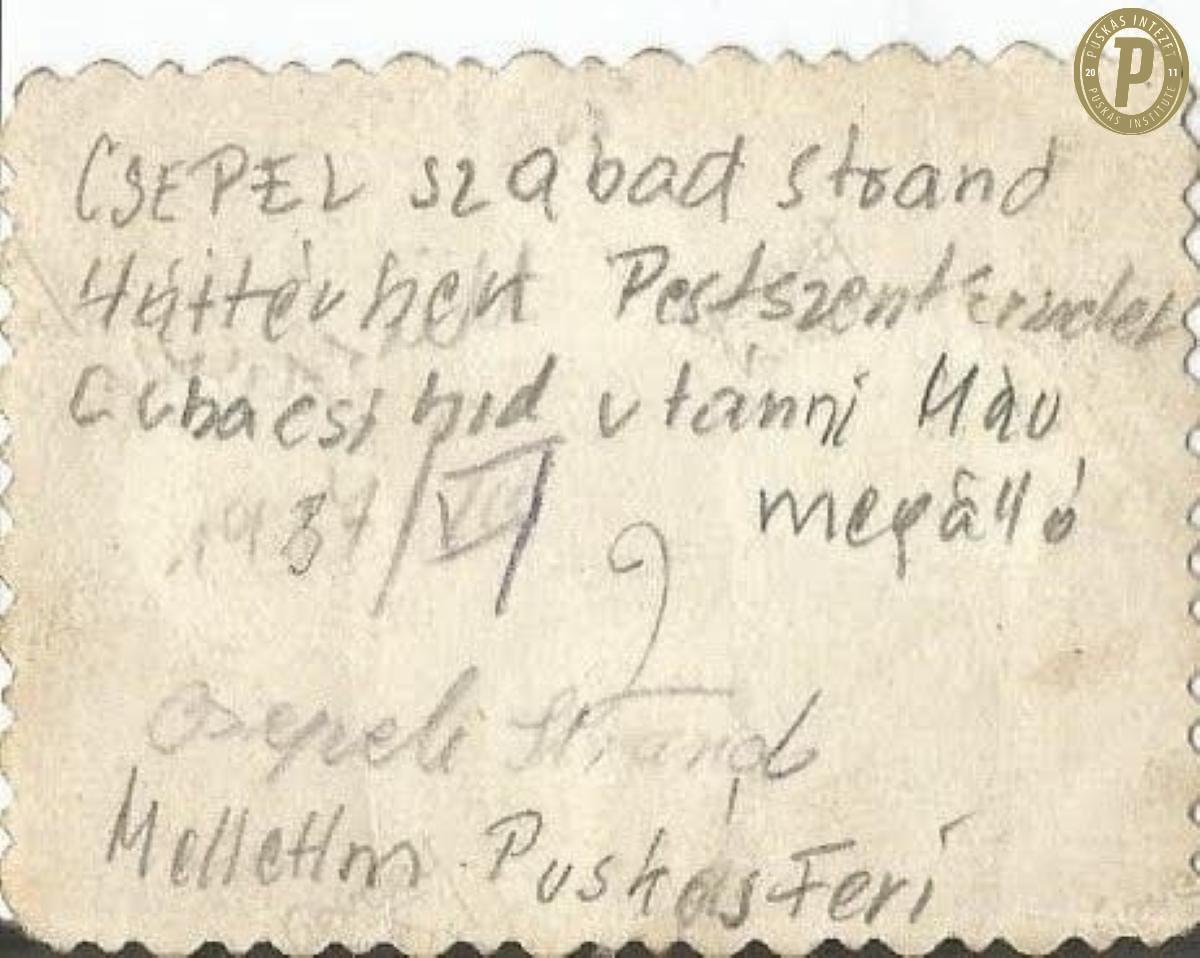 PUSKÁS INTÉZET
20 P 11
PUSKÁS INSTITUTE
CSEPEL szabad strand
Háttérben Pestszenterzsébet
Gubacsi hid utánni Háv
megálló
VI
Csepeli Strand
Mellettm Puskás Feri